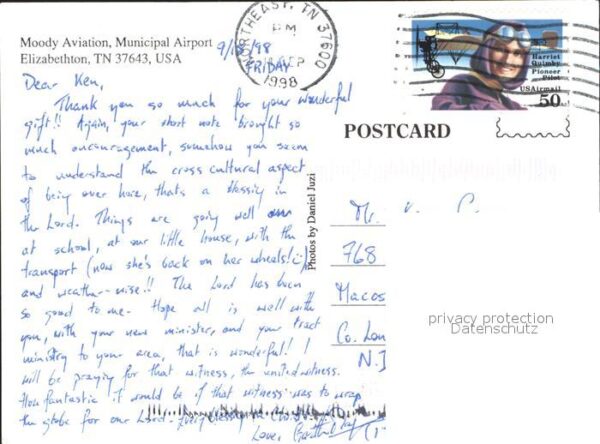 Moody Aviation, Municipal Airport
Elizabethton, TN 37643, USA
9/18/98
FRIDAY
NORTHEAST, TN 37600
PM
SEP
1998
Harriet
Quimby
Pioneer
Pilot
USAirmail
50
POSTCARD
Photos by Daniel Juzi
Dear Ken,
Thank you so much for your wonderful
gift!! Again, your short note brought so
much encouragement, somehow you seem
to understand the cross cultural aspect
of being over here, thats a blessing in
the Lord. Things are going well
at school, at our little house, with the
transport (now she's back on her wheels!
and weather--wise!! The Lord has been
so good to me. Hope all is well with
you, with your new minister, and your tract
ministry to your area, that is wonderful! I
will be praying for that witness, the united witness.
How fantastic it would be if that witness was to wrap
the globe for our Lord. Every blessing
Love,
Mr.
768
Macos
Co. Lon
N.I
privacy protection
Datenschutz